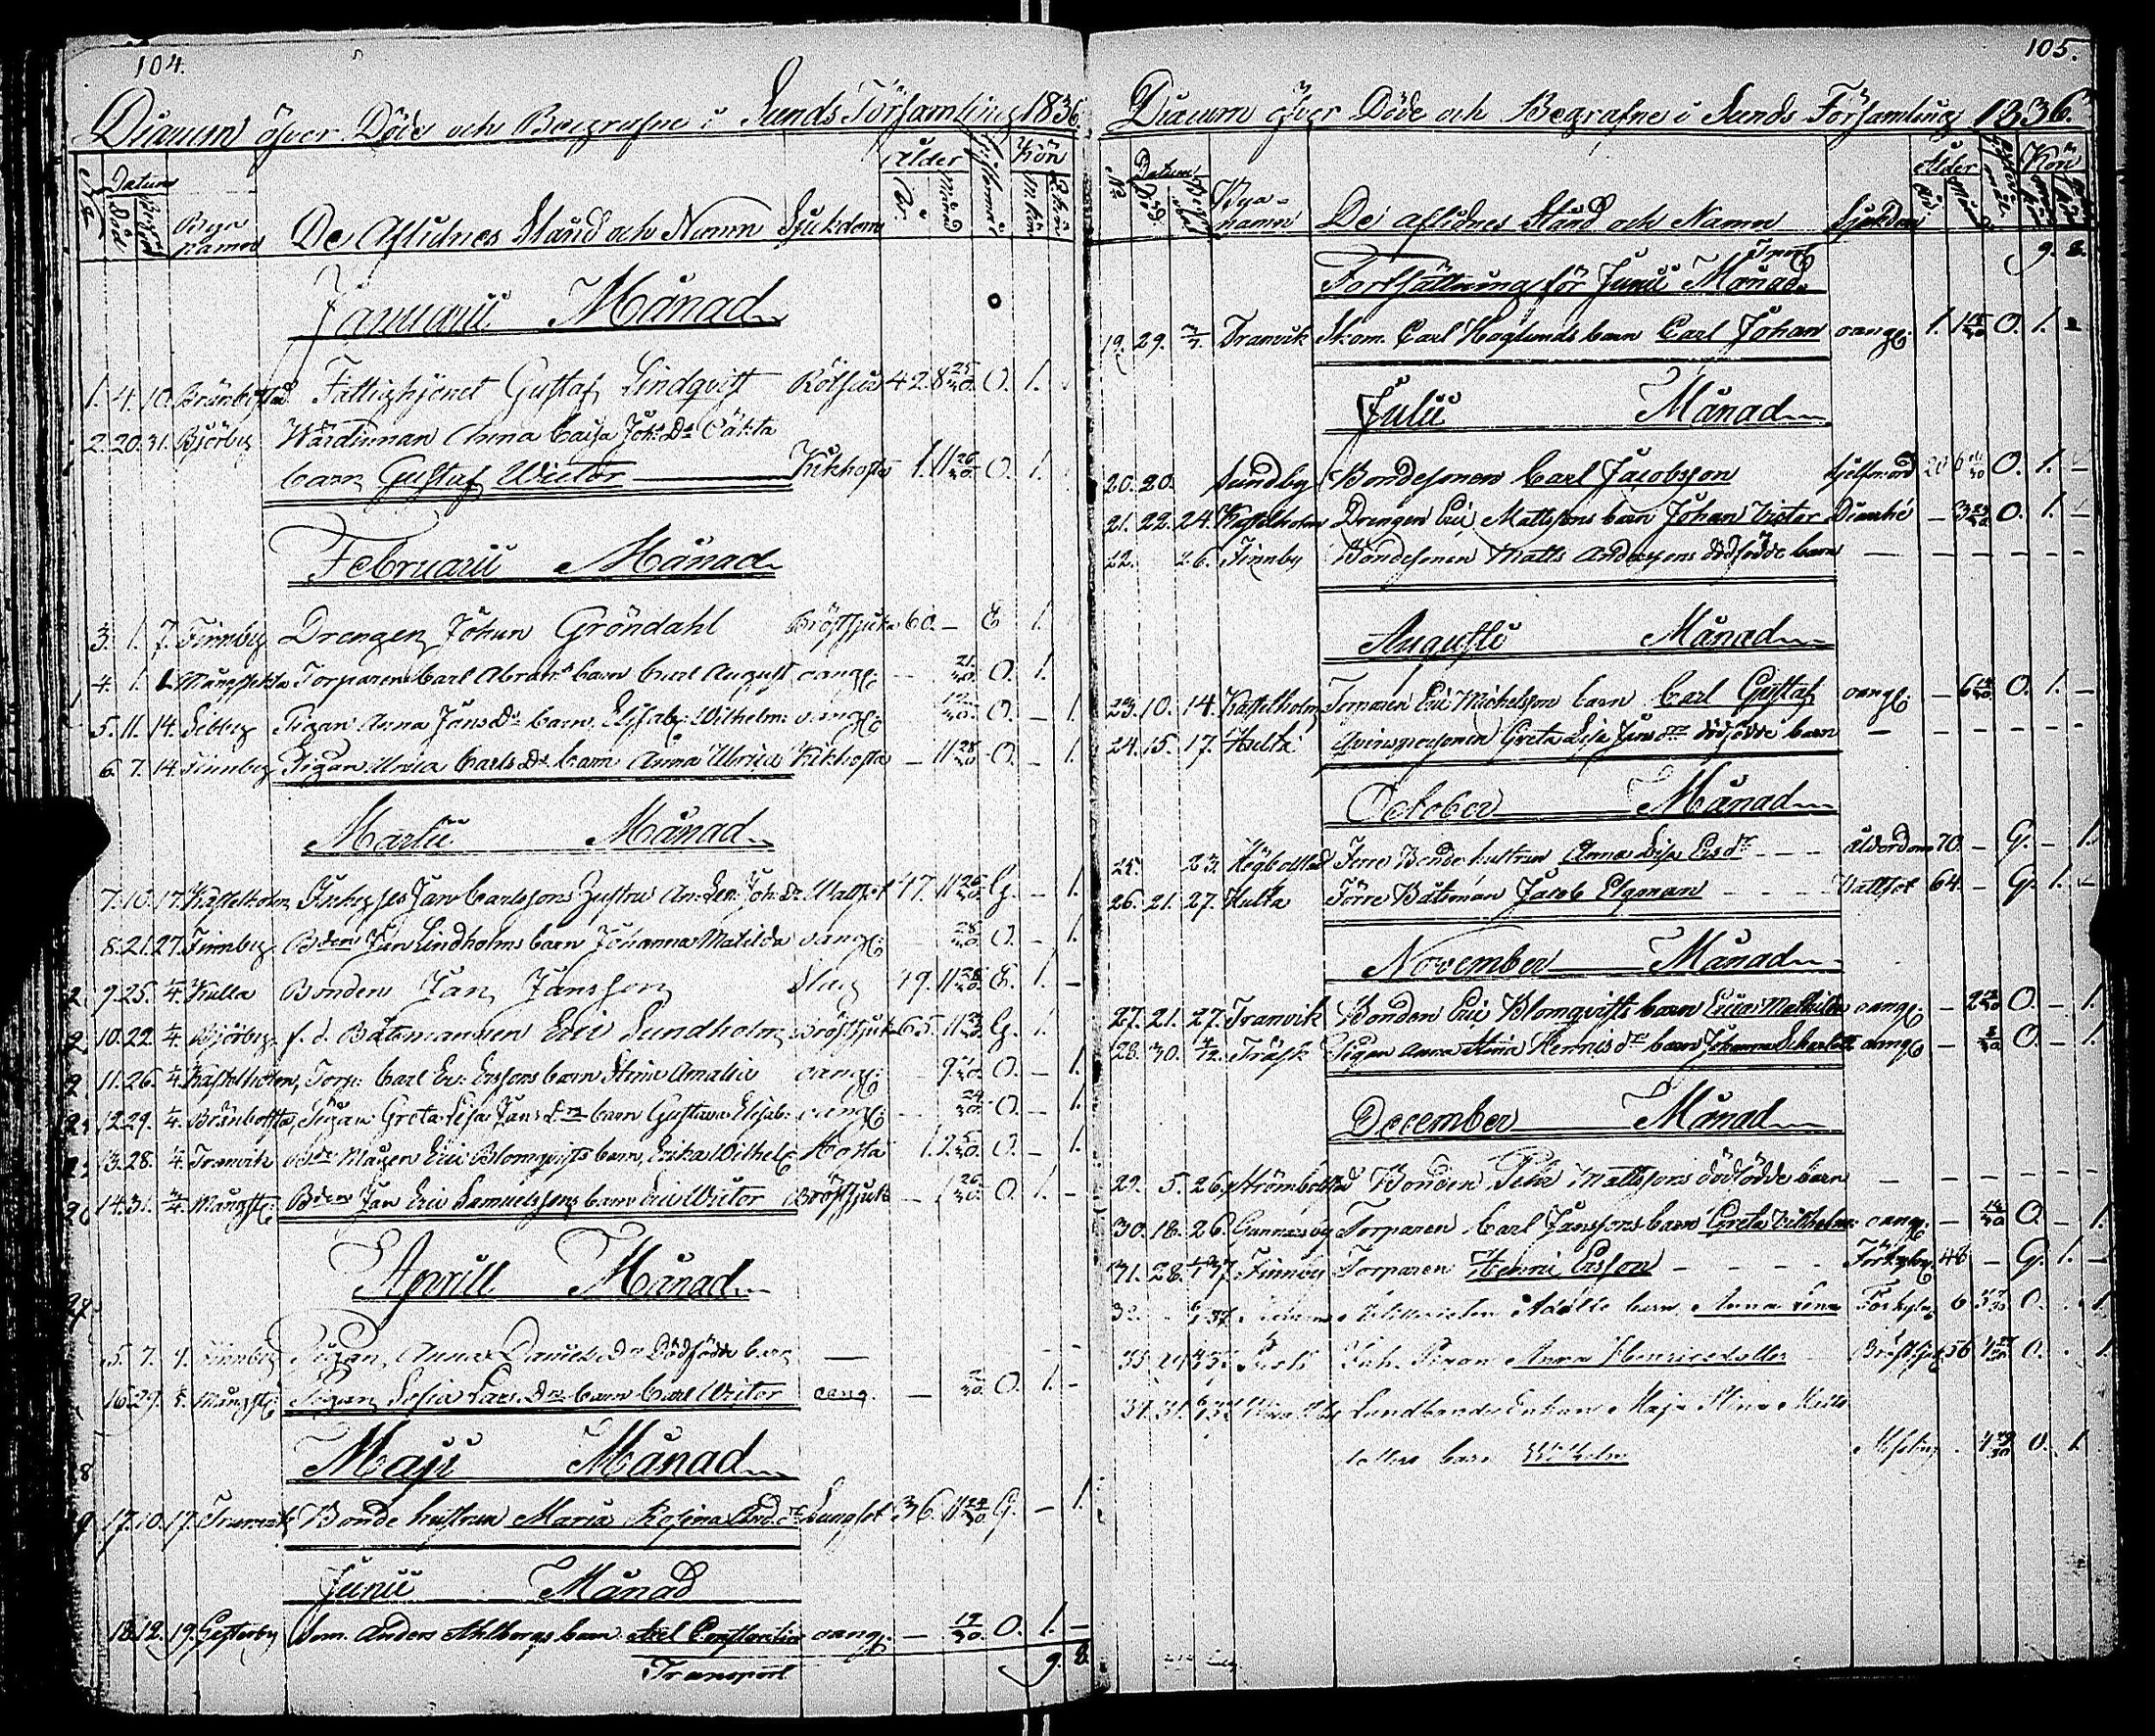 104.
Diarium öfver Döde och Begrafne i Sunds Församling 1836
No Datum Död Begrof Bya namn De Aflidnes Stånd och Namn Sjukdom Ålder År Månad Kön M. kön
Januarii Månad
1. 4. 10. Bränbolstad Fattighjonet Gustaf Lindqvist Rötfeber 42. 8 25/30. O. 1.
2. 20. 31. Björby Wärdinnan Anna Caisa Joh: Dr Oäkta
barn Gustaf Wictor Kikhosta 1. 11 26/30. O. 1.
Februarii Månad
3. 1. 7. Finnby Drengen Johan Gröndahl Bröstsjuka 60. — E 1.
4. 1. Mångstekta Torparen Carl Abrah:s barn Carl August oang: — 21/30. O. 1.
5. 11. 14. Sibby Pigan Anna Jans Dr barn Elisab: Wilhelm: oang: 12/30. O. — 1.
6. 7. 14. Finnby Pigan Ulrica Carls Dr barn Anna Ulrica Kikhosta — 11 28/30 O. — 1.
Martii Månad
7. 10. 17. Kastelholm Inhyses Jan Carlssons hustru An: Len: Joh: Dr Wattsot 47. 11 26/30. G. — 1.
8. 21. 27. Finnby Bden Jan Lindholms barn Johanna Matilda oang: 28/30. O. — 1.
9. 25. 4/4. Kulla Bonden Jan Jansson Slag 49. 11 28/30. E. 1. —
10. 22. 4/4 Björby f. d. Båtsmannen Eric Sundholm Bröstsjuk 65. 11 G. 1.
11. 26. 4/4 Kastelholm, Torp: Carl Er: Erssons barn Stina Amalia oang: — 9 O. — 1.
12. 29. 4. Bränbolsta, Pigan Greta Lisa Jans Dr barn Gustava Elisab: oang: — 24/30. O. — 1.
13. 28. 4/4. Tranvik Bde Mågen Eric Blomqvists barn, Erika Wilhel: Hosta 1. 2 5/30. O. — 1.
14. 31. 4/4 Mångst: Bden Jan Eric Samuelssons barn Eric Wictor Bröstsjuk — 1 26/30. O. 1. —
Aprill Månad
15. 7. 4. Finnby Pigan Anna Daniels Dr Dödfödde barn — — —
16. 29. 5. Mångst: Pigan Sofia Lars Dr barn Carl Wictor oang. — O. 1. —
Maji Månad
17. 10. 17. Tranvik Bonde hustrun Maria Rosina And. dr Lungsot 36. 11 24/30. G. — 1.
Junii Månad
18. 12. 19. Gesterby Som. Anders Ahlbergs barn Axel Constantin oang: — 19/30. O. 1. —
Transport 9. 8.
105.
Diarium öfver Döde och Begrafne i Sunds Församling 1836.
No Datum Död Bya-namn De aflidnes Stånd och Namn Sjukdom Ålder År Kön
Transp 9. 8.
Fortsättning för Junii Månad
19. 29. 3/7. Tranvik Skom. Carl Höglunds barn Carl Johan oang: 1. 1 O. 1.
Julii Månad
20. 20. Sundby Bondesonen Carl Jacobsson sjelfmord 20 6 O. 1. —
21. 22. 24. Kastelholm Drengen Eric Mattssons barn Johan Victor Diarrhé — 3 O. 1. —
22. 26. Finnby Bondesonen Matts Anderssons dödfödde barn — — — — — —
Augusti Månad
23. 10. 14. Kastelholm Torparen Eric Michelsson barn Carl Gustaf oang: — 6 O. 1. —
24. 15. 17. Hulta Qvinspersonen Greta Lisa Jans dr dödfödde barn — — — — — —
October Månad
25. 23. Högbolstad Förre Bonde hustrun Anna Lisa Ers dr Ålderdom 70. — G. — 1.
26. 21. 27. Hulta Förre Båtsman Jacob Elgman Vattsot 64. — G. 1. —
November Månad
27. 21. 27. Tranvik Bonden Eric Blomqvists barn Erica Mathilda oang: — 2 O. — 1.
28. 30. 4/12. Träsk Pigan Anna Stina Henrics dr barn Johanna Scharlott: oang: — O. — 1.
December Månad
29. 5. 26. Strömbolstad Bonden Pehr Mattssons dödfödde barn — — — — — —
30. 18. 26. Gunnarsby Torparen Carl Janssons barn Greta Vilhelm: oang: — 14/30 O. — 1.
31. 28. 37. Finnby Torparen Henric Ersson Förkyln: 48 — G. 1. —
32. 37 barn Anna Lena Förkyln: 6 O. 1.
33. Pigan Anna Henricsdotter Bröstsjuk 56 O. 1.
34. 31. Enkan Maja Stina Matts
dotters barn Wilhelm 4 O. 1.